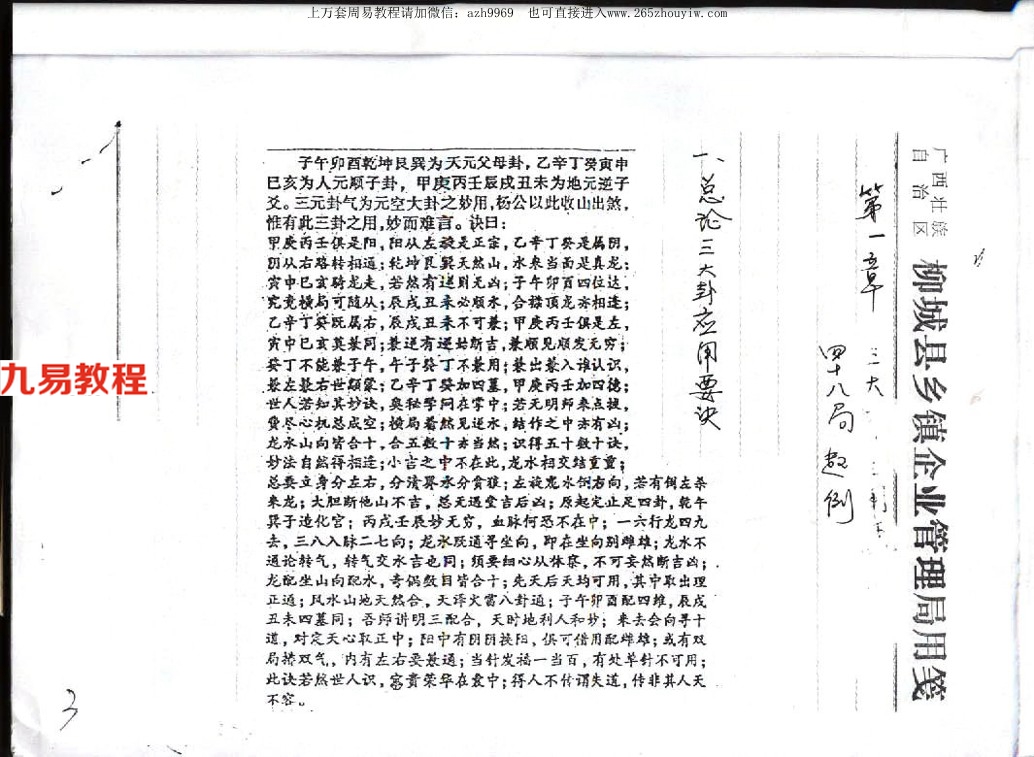 上万套周易教程请加微信：azh9969 也可直接进入www.265zhouyiw.com
广西壮族
自治区
柳城县乡镇企业管理局用笺
第一章 三大
四十八局起例
一、总论三大卦应用要诀
子午卯酉乾坤艮巽为天元父母卦，乙辛丁癸寅申
巳亥为人元顺子卦，甲庚丙壬辰戌丑未为地元逆子
爻。三元卦气为元空大卦之妙用，杨公以此收山出煞，
惟有此三卦之用，妙而难言。诀曰：
甲庚丙壬俱是阳，阳从左旋是正宗，乙辛丁癸是属阴，
阴从右路转相通；乾坤艮巽天然山，水来当面是真龙；
寅申巳亥骑龙走，若然有迷则无凶；子午卯酉四位达，
究竟横局可随从；辰戌丑未必顺水，合禄顶龙亦相连；
乙辛丁癸既属右，辰戌丑未不可兼；甲庚丙壬俱是左，
寅申巳亥莫兼同；兼逆有逆始断吉，兼顺见顺发无穷；
癸丁不能兼子午，午子癸丁不兼用；兼出兼入谁认识，
兼左兼右世颇蒙；乙辛丁癸加四墓，甲庚丙壬加四德；
世人若知其妙诀，奥秘学问在掌中；若无明师来点拔，
费尽心机总成空；横局着然见逆水，结作之中亦有凶；
龙水山向皆合十，合五数十亦当然；识得五十数十诀，
妙法自然得相连；小吉之中不在此，龙水相交结重重；
总要立身分左右，分清界水分贪狼；左旋龙水倒方向，若有倒左杀
来龙；大胆断他山不吉，总无遇堂吉后凶；原起定止足四卦，乾午
巽子造化宫；丙戌壬辰妙无穷，血脉何恐不在中；一六行龙四九
去，三八入脉二七向；龙水跃通寻坐向，即在坐向别雌雄；龙水不
通论转气，转气交水吉也同；须要细心从体察，不可妄然断吉凶；
龙配坐山向配水，奇偶数目皆合十；先天后天均可用，其中取出理
正通；风水山地天然合，天泽火雷八卦通；子午卯酉配四维，辰戌
丑未四墓同；吾师讲明三配合，天时地利人和妙；来去会向寻十
道，对定天心取正中；阳中有阴阴换阳，俱可借用配雌雄；或有双
局搭双气，内有左右要兼通；当针发福一当百，有处单针不可用；
此诀若然世人识，富贵荣华在袁中；得人不传谓失道，传非其人天
不容。
九易教程
3